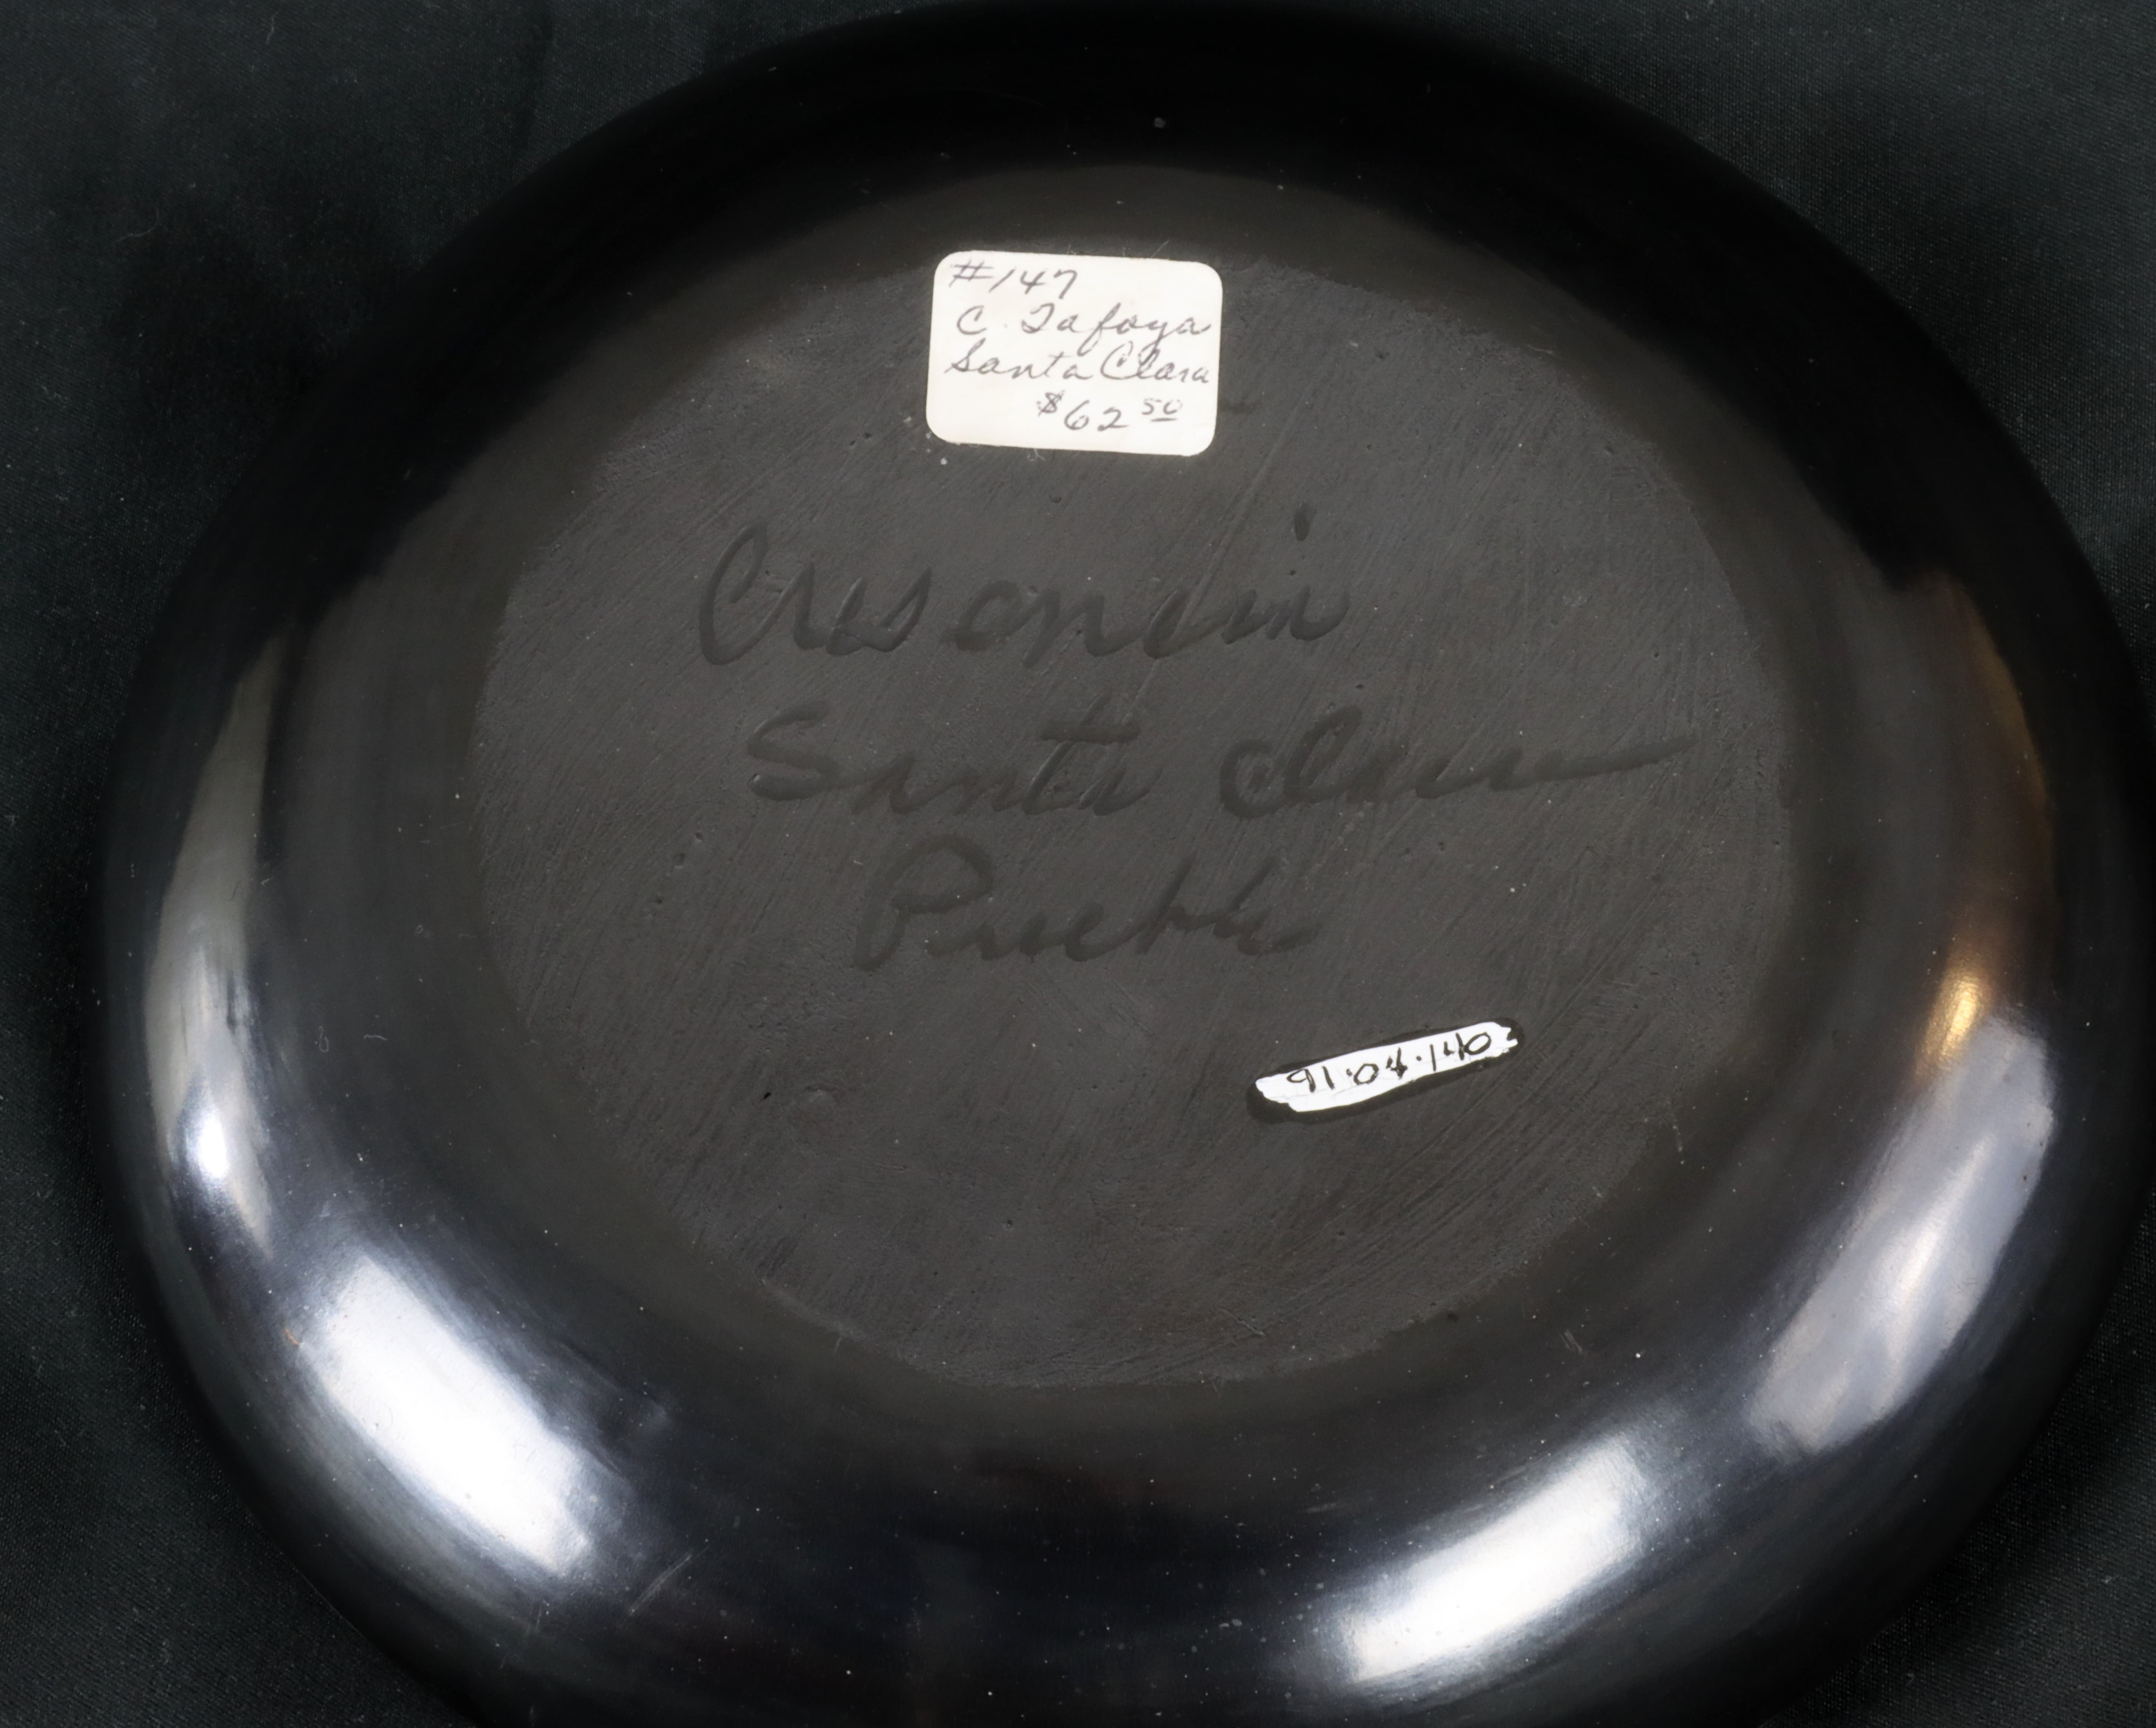 #147
C. Tafoya
Santa Clara
$62 50
Cresencia
Santa Clara
Pueblo
91.04.140